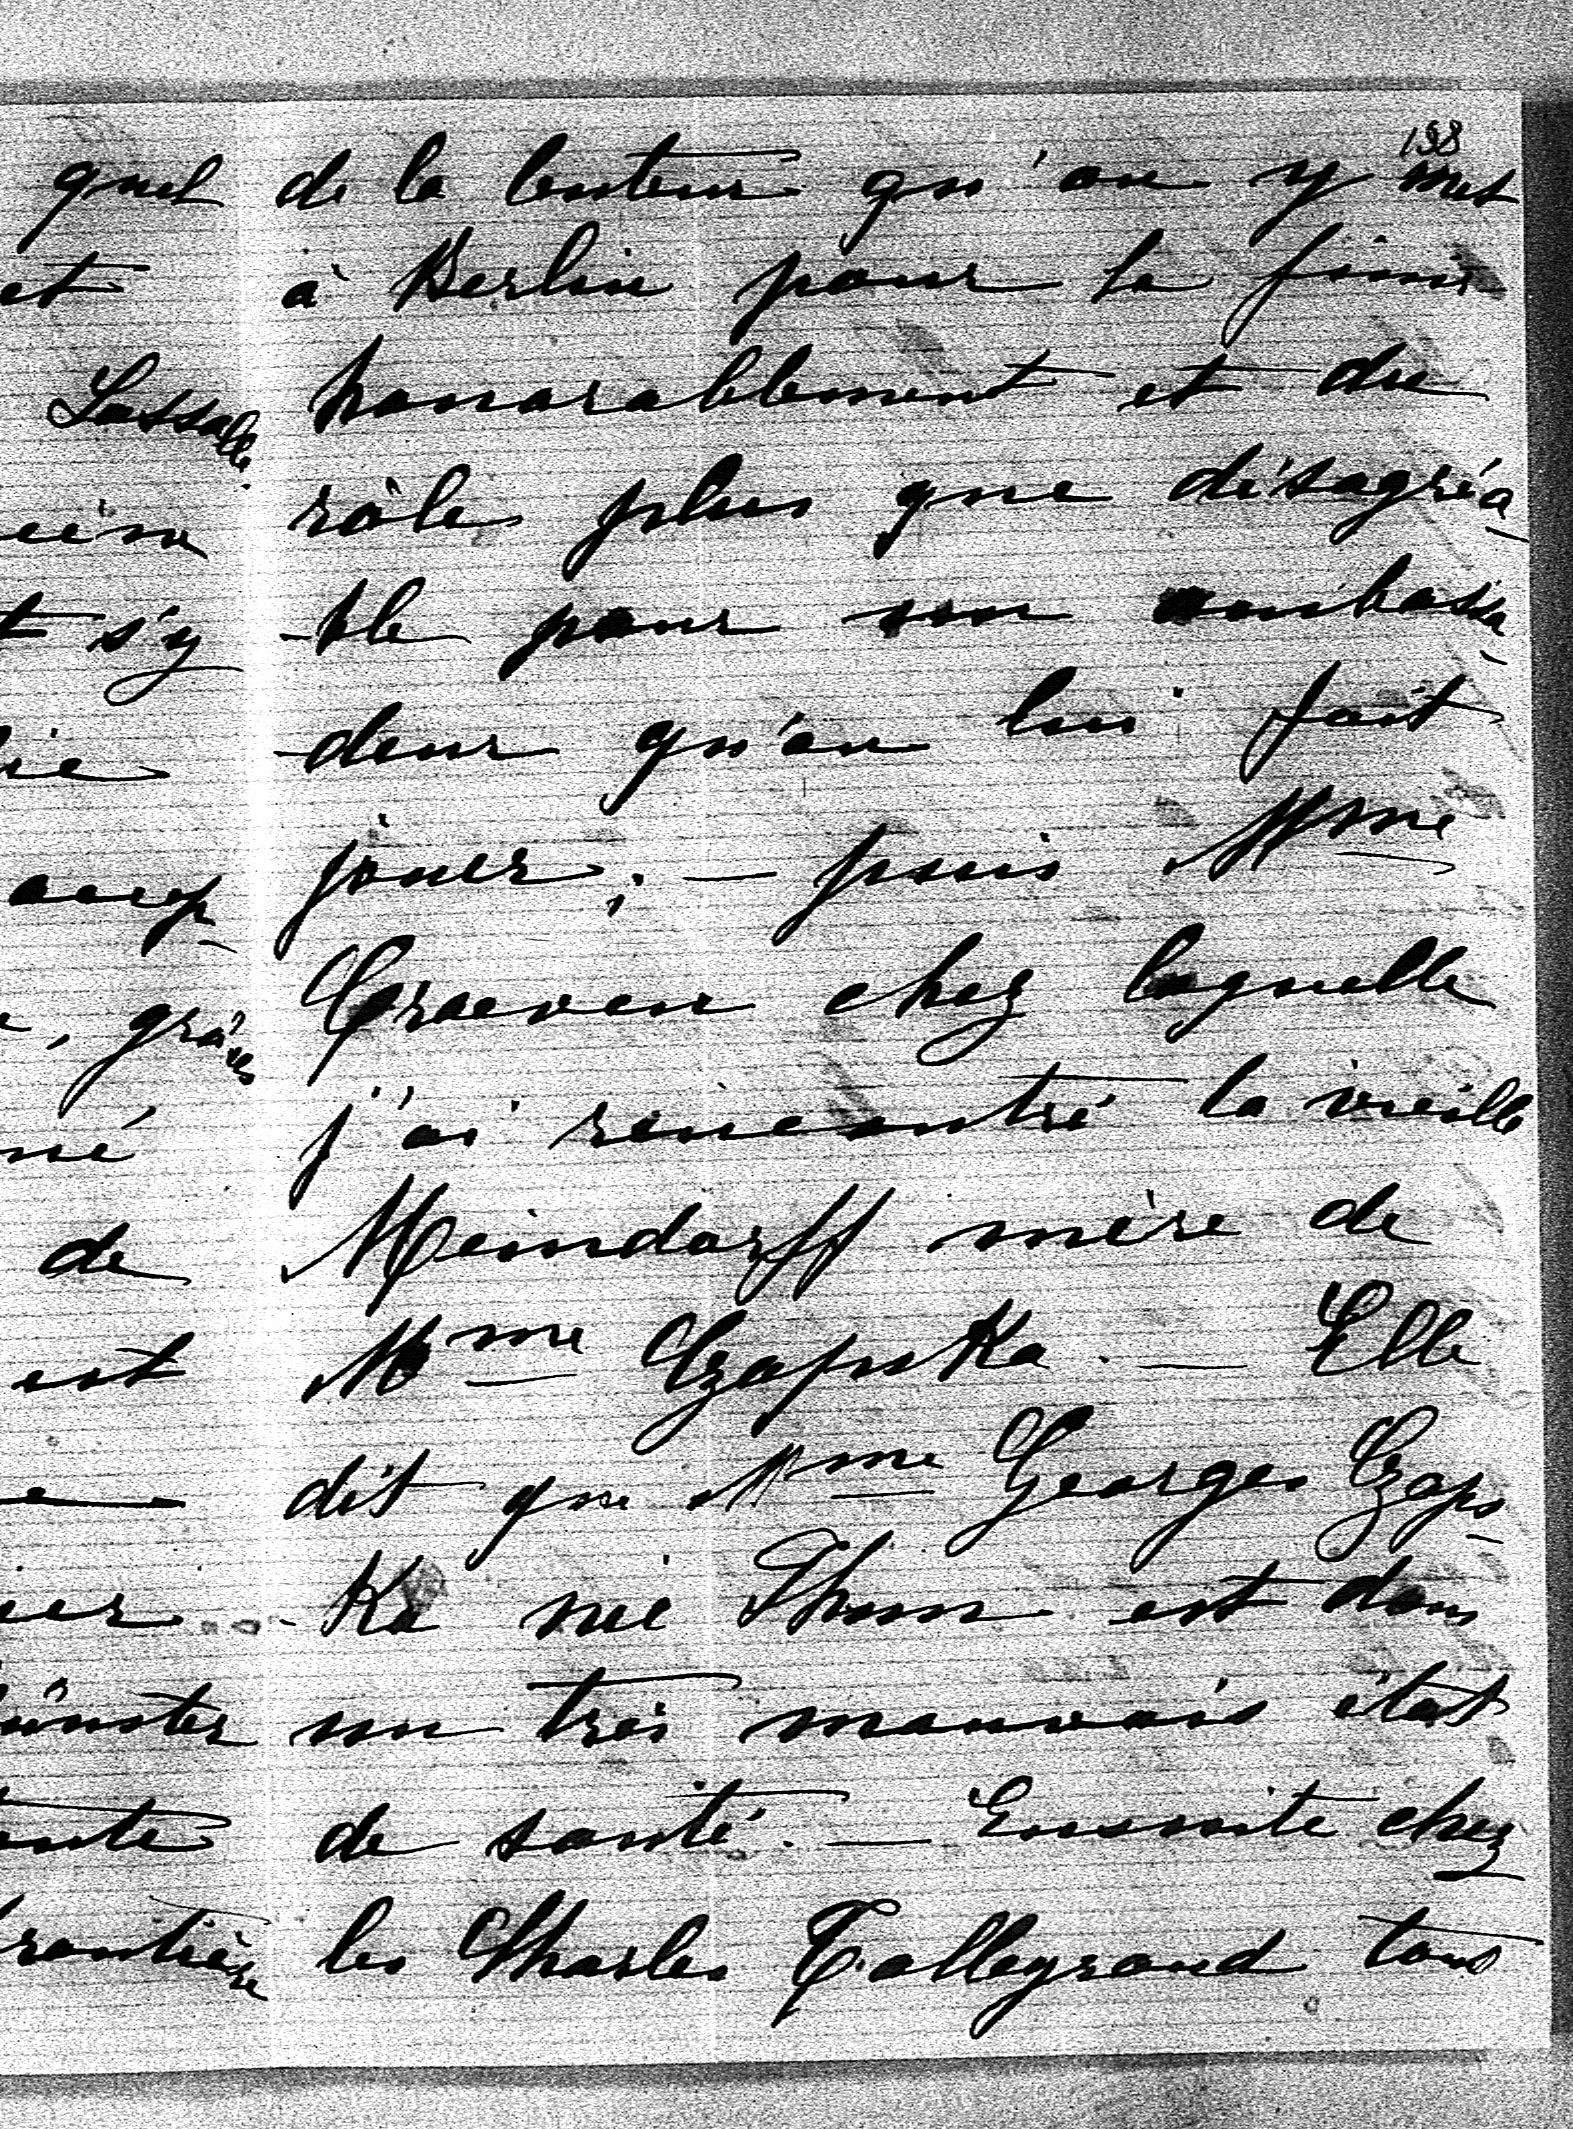 138
de la lenteur qu'on y met
à Berlin pour le finir
honorablement et du
rôle plus que désagréa
-ble pour son ambassa
-deur qu'on lui fait
jouer; — puis Mme
Craeven chez laquelle
j'ai rencontré la vieille
Meindorff mère de
Mme Czapska. — Elle
dit que Mme Georges Czaps
-ka née Thun est dans
un très mauvais état
de santé. — Ensuite chez
les Charles Talleyrand tous
quel
et
Lassalle
s'y
de
est